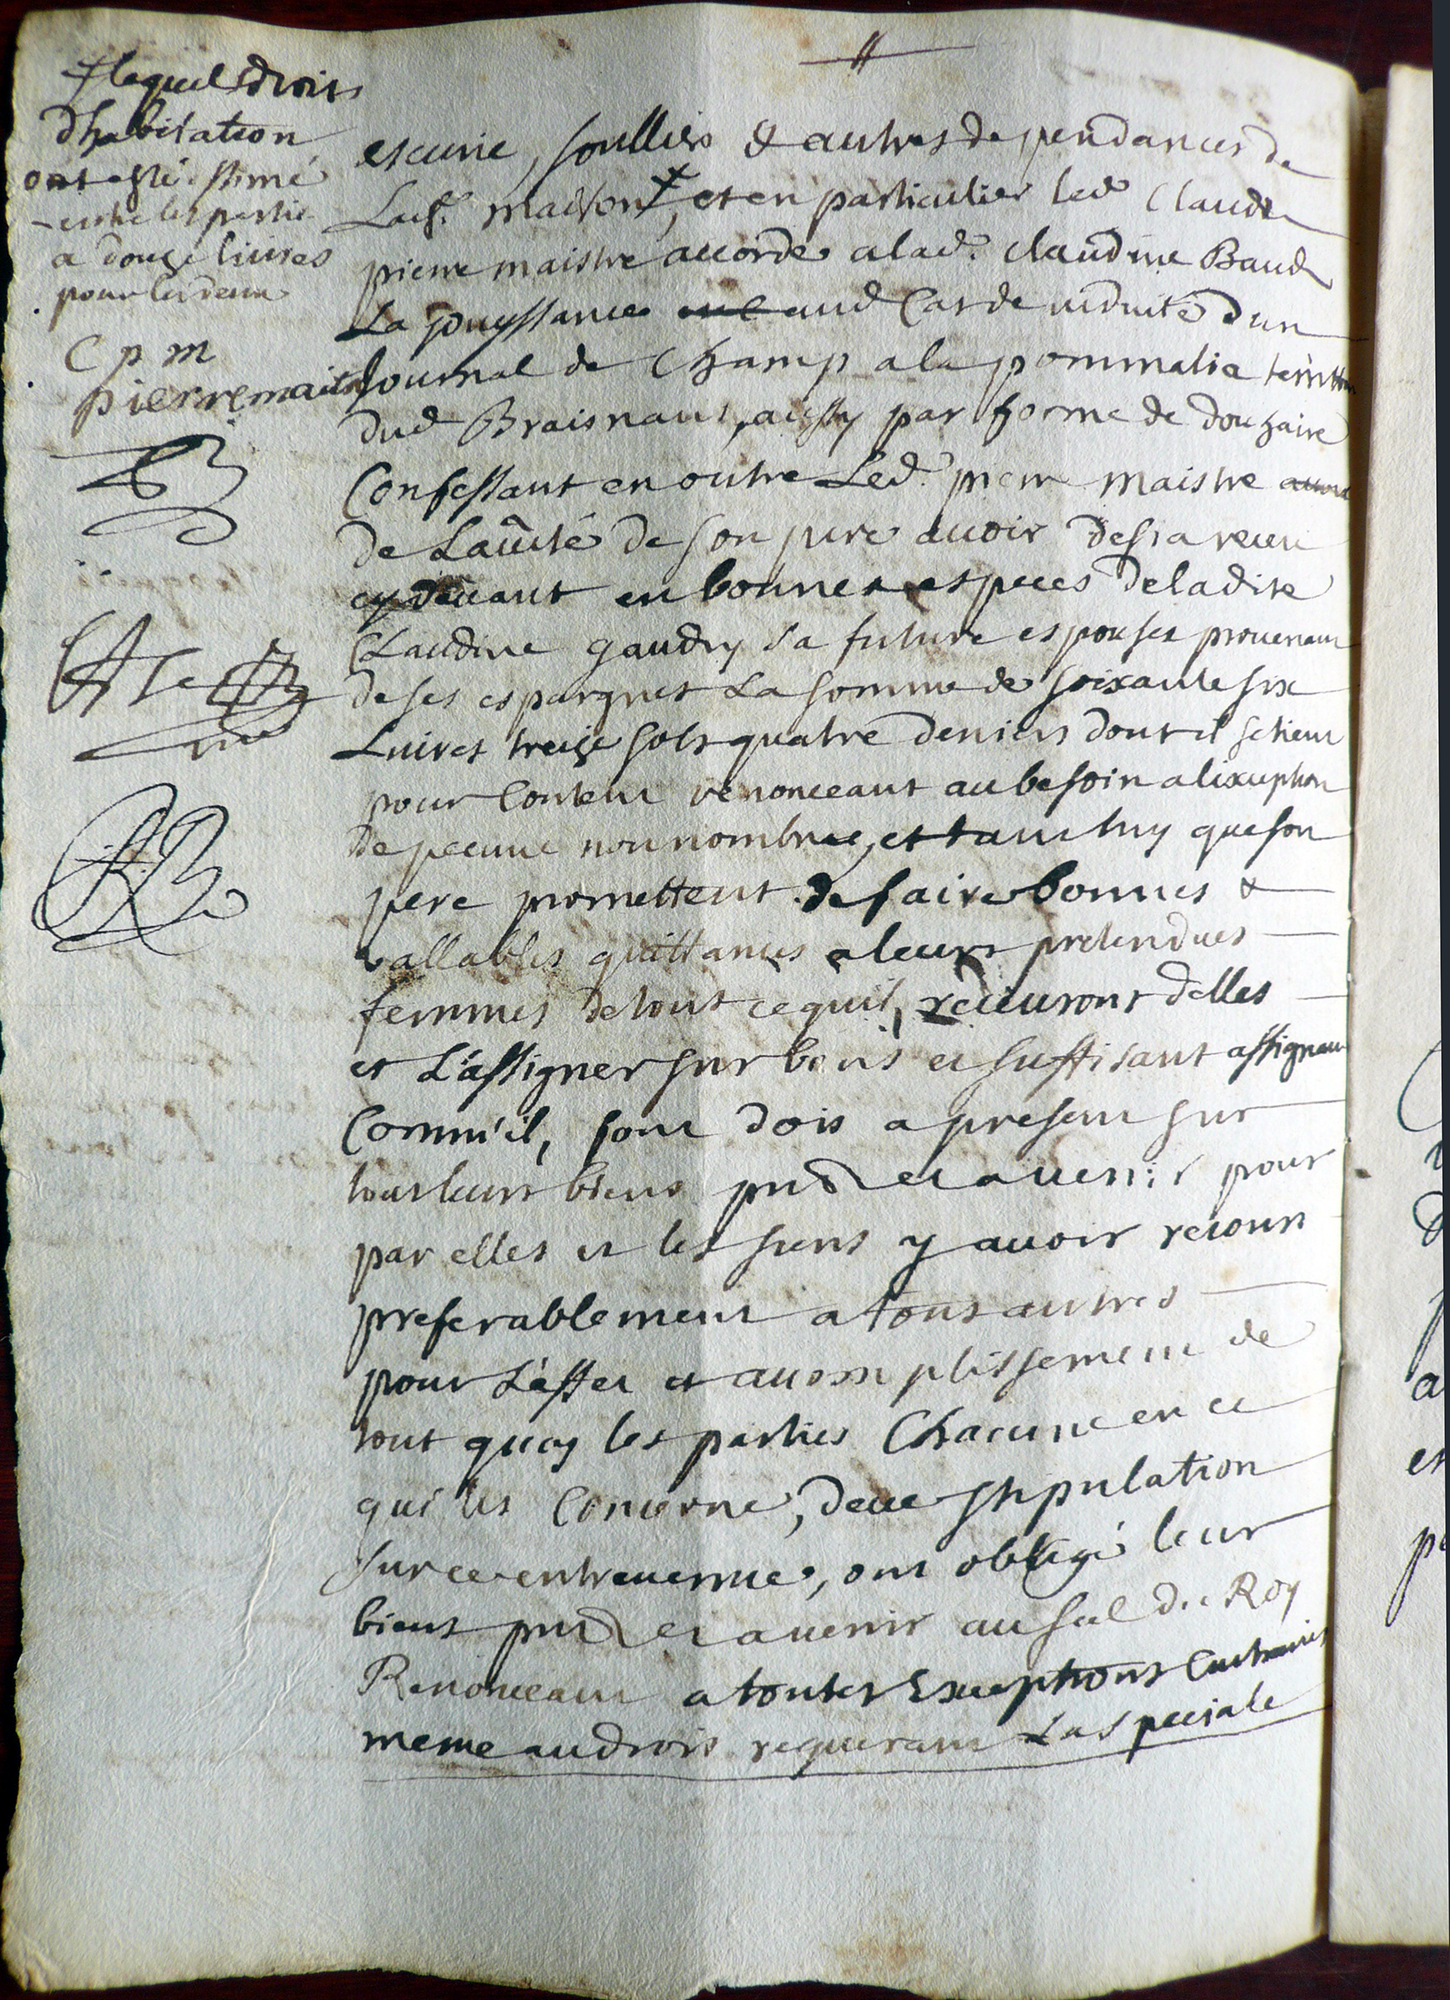 lequel droits
dhabitation
ont esté estimé
entre les partie
a douze livres
pour les deux
C p m
pierre maitre
escurie, soulliers & autres dependances de
Lad. maison, et en particulier led Claude
pierre maistre accorde a lad. claudine Baud
La jouyssance aud Cas de viduité dun
Journal de Champ a la pommalie
dud Braisnaus, aussy par forme de douhaire
Confessant en outre Led. pierre maistre
de Lauthé de son pere avoir desia receu
cy devant en bonnes especes de ladite
Claudine gaudry sa future espouses provenant
de ses espargnes La somme de soixante six
Livres treize sols quatre deniers dont il se tient
pour Content renonceant au besoin a lexception
de pecune non nombree, et tant luy que son
pere promettent de faire bonnes &
vallables quittances a leurs pretendues
femmes de tout ce quil, recevront delles
et L'assigner sur bons et suffisant assignau
Comm'il, sont dois a present sur
tous leurs biens pnd et avenir pour
par elles et les siens y avoir recours
preferablement a tous autres
pour L'effet et accomplissement de
tout quoy les parties Chacune en ce
qui les Concerne, deue stipulation
sur ce entrevenue, ont obligé leur
biens pnd et avenir au scel du Roy
Renonceant a toutes Exceptions Contraires
meme au droit requerant La speciale